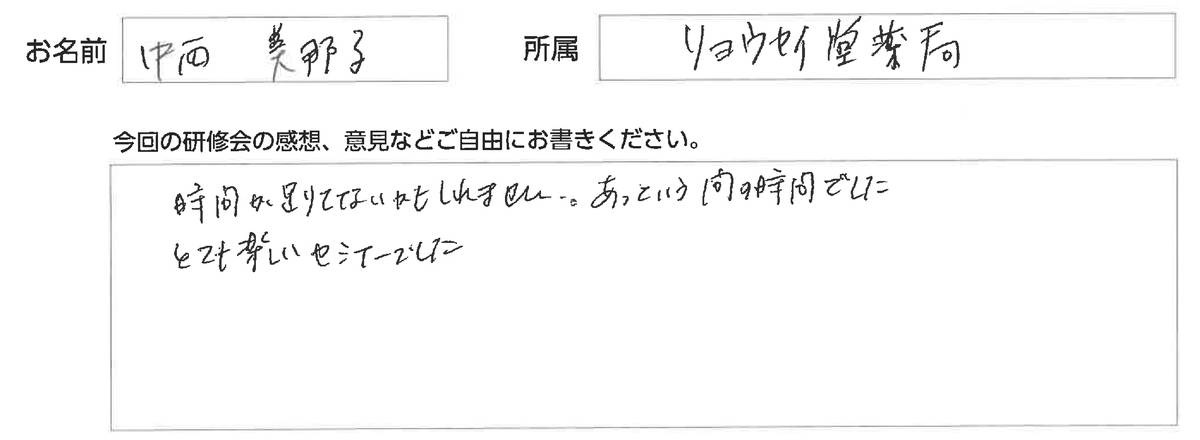 お名前 中西 美那子 所属 リョウセイ堂薬局
今回の研修会の感想、意見などご自由にお書きください。
時間が足りてないかもしれません…。あっという間の時間でした
とても楽しいセミナーでした